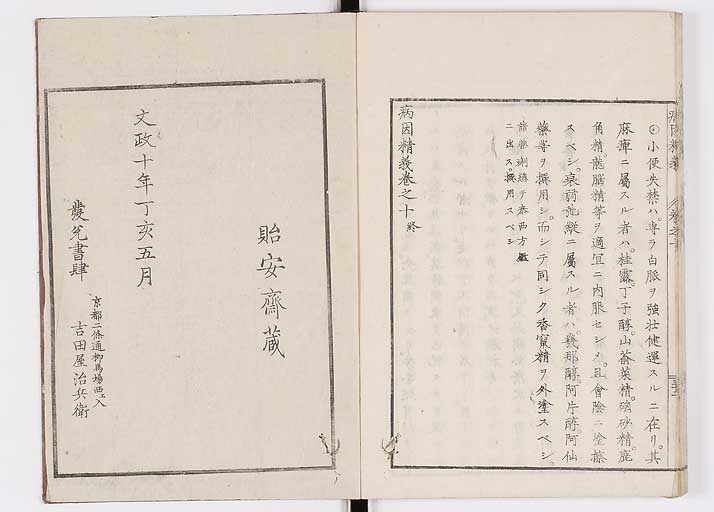 ◯小便失禁ハ。専ラ白脈ヲ強壮健運スルニ在リ。其
麻痺ニ屬スル者ハ。桂露。丁子醇。山葵菜精。硇砂精。鹿
角精。龍脳精等ヲ適宜ニ内服セシメ。且會陰ニ塗擦
スベシ。衰弱弛縱ニ屬スル者ハ。幾那醇。阿片醇。阿仙
藥等ヲ撰用シ。而シテ同シク香竄精ヲ外塗スベシ。
諸藥製煉テ泰西方鑑
ニ出ス。撰用スベシ
病因精義巻之十終
貽安齋蔵
文政十年丁亥五月
發兌書肆
京都二條通柳馬場西ェ入
吉田屋治兵衛